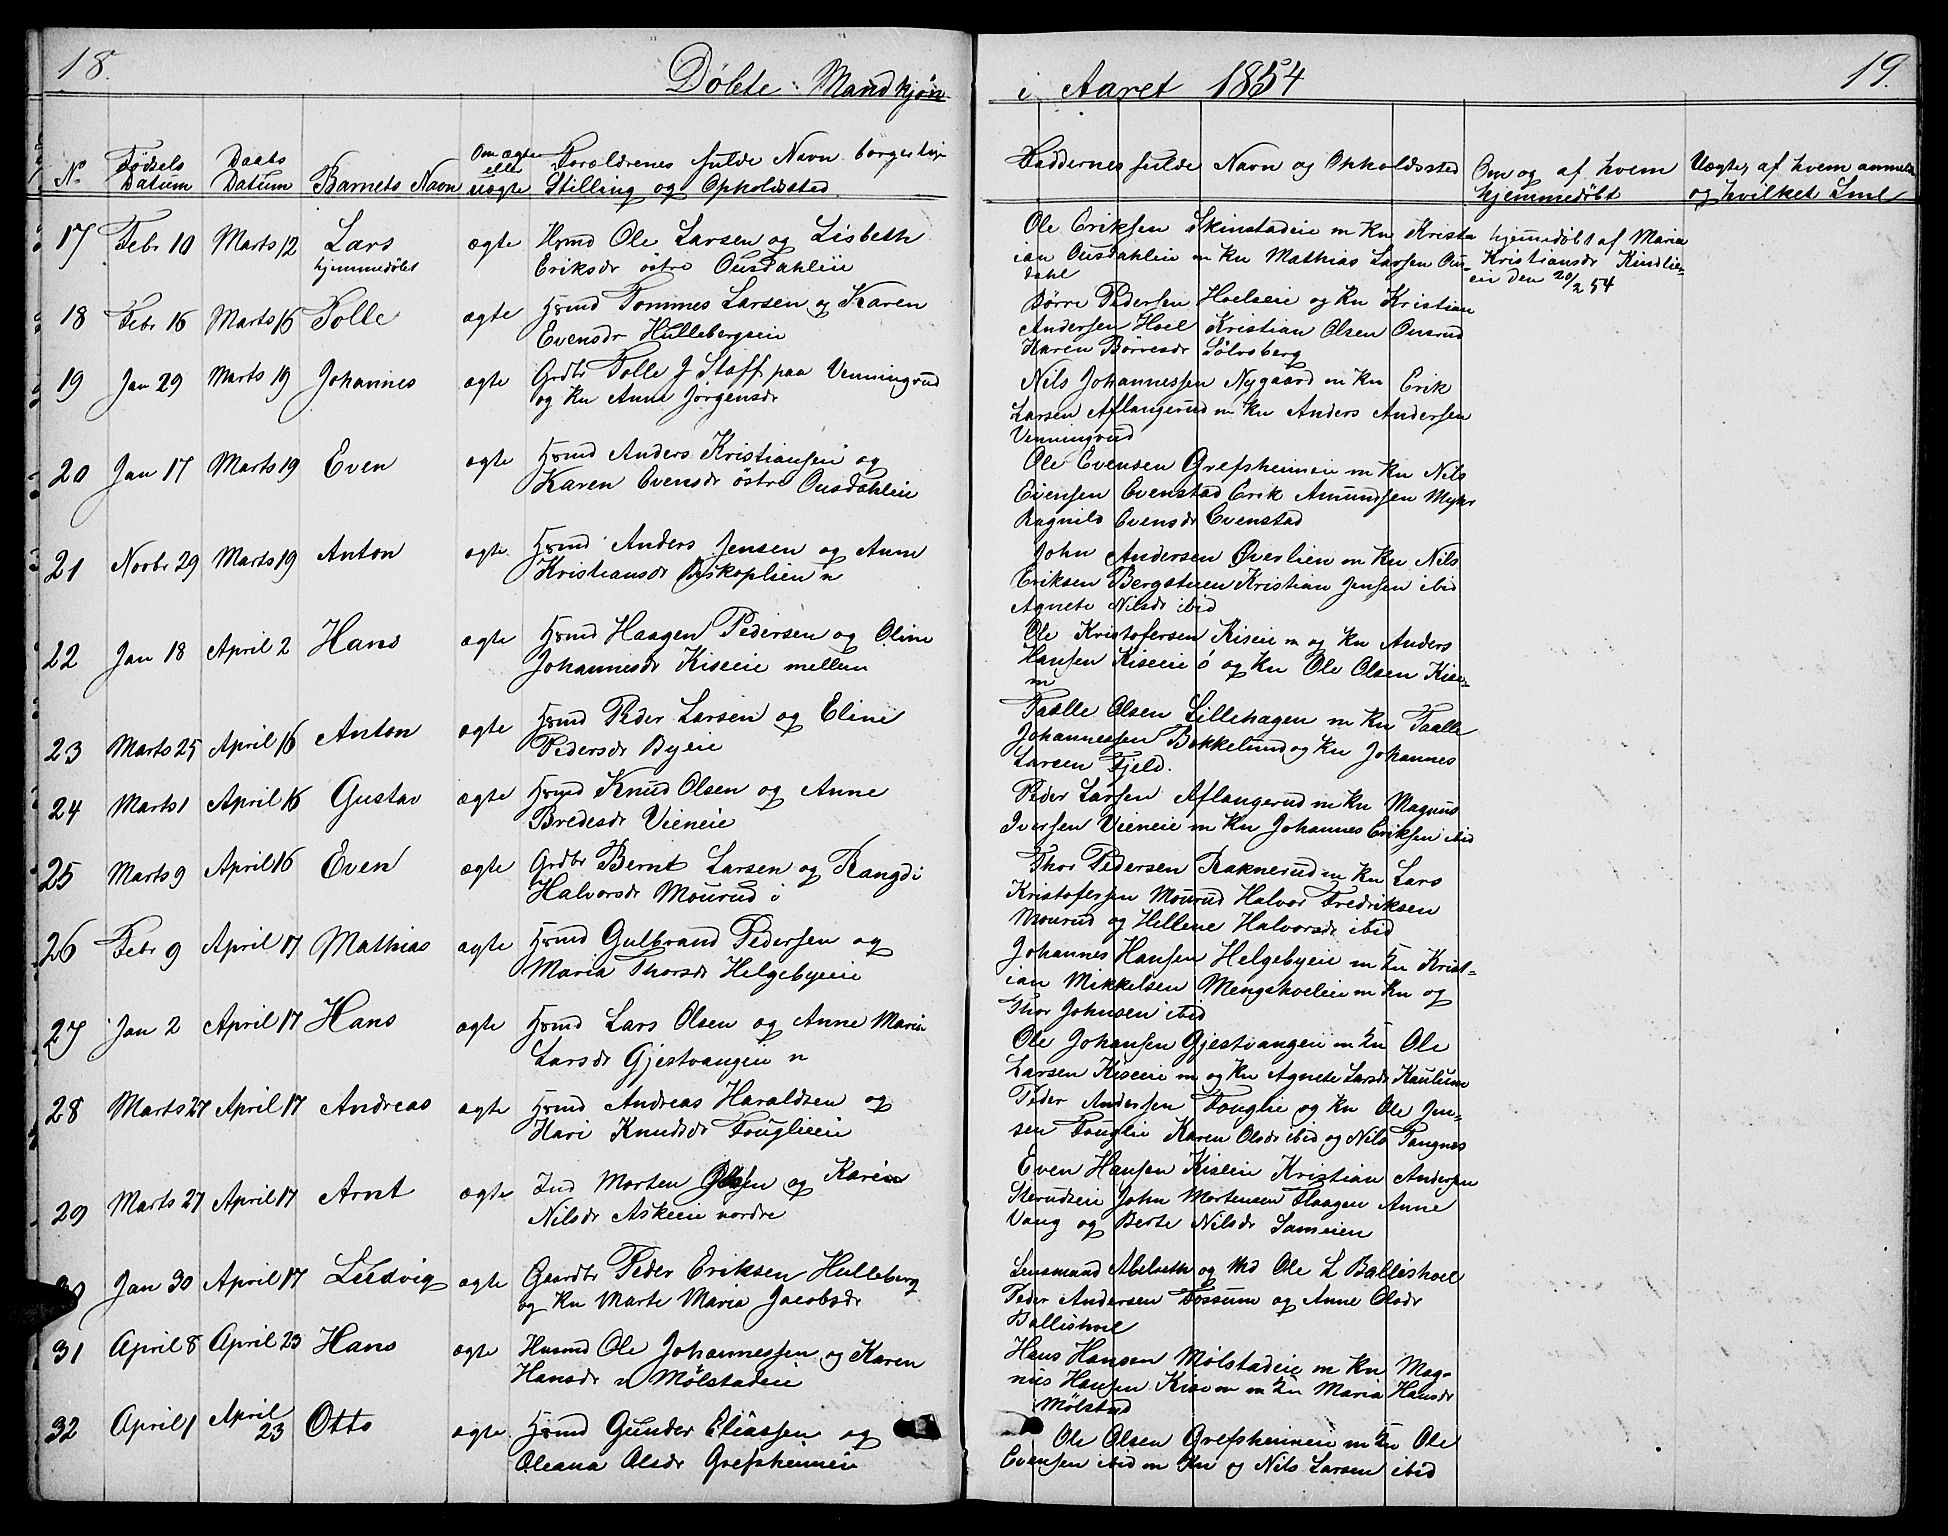 18.
Døbte Mandkjøn
i Aaret 1854
19.
No Fødsels Datum Daabs Datum Barnets Navn Om ægte eller uægte Forældrenes fulde Navn borgerlige Stilling og Opholdssted
Faddernes fulde Navn og Opholdssted Om og af hvem hjemmedøbt Uægte, af hvem anmeldt og hvilket Lml
17 Febr 10 Marts 12 Lars ægte Hsmd Ole Larsen og Lisbeth
hjemmedøbt Eriksdr østre Ousdahleie
Ole Eriksen Skinstadeie m Kn Krist
ian Ousdahleie m Kn Mathias Larsen Ous-
dahl
hjemmedøbt af Maria
Kristiansdr Kindlie-
eie den 20/2 54
18 Febr 16 Marts 16 Tolle ægte Hsmd Tommes Larsen og Karen
Evensdr Hullebergseie
Børre Pedersen Hoelseie og Kn Kristian
Andersen Hoel Kristian Olsen Ousrud
Karen Børresdr Sølvsberg
19 Jan 29 Marts 19 Johannes ægte Grdbr Tolle J Staff paa Venningrud
og Kn Anne Jørgensdr
Nils Johannessen Nygaard m Kn Erik
Larsen Aflangerud m Kn Anders Andersen
Venningrud
20 Jan 17 Marts 19 Even ægte Hsmd Anders Kristiansen og
Karen Evensdr østre Ousdahleie
Ole Evensen Grefsheimeie m Kn Nils
Evensen Evenstad Erik Amundsen Myhr
Ragnild Evensdr Evenstad
21 Novbr 29 Marts 19 Anton ægte Hsmd Anders Jensen og Anne
Kristiansdr Biskoplien n
John Andersen Øverlien m Kn Nils
Eriksen Bergsteien Kristian Jensen ibid
Agnete Nilsdr ibid
22 Jan 18 April 2 Hans ægte Hsmd Haagen Pedersen og Oline
Johannesdr Kiseeie mellem
Ole Kristofersen Kiseie m og Kn Anders
Hansen Kiseeie ø og Kn Ole Olsen Kise-
m
23 Marts 25 April 16 Anton ægte Hsmd Peder Larsen og Eline
Pedersdr Byeie
Taalle Olsen Lillehagen m Kn Taalle
Johannessen Bakkelund og Kn Johannes
Larsen Fjeld.
24 Marts 1 April 16 Gustav ægte Hsmd Knud Olsen og Anne
Bredesdr Vieneie
Peder Larsen Aflangerud m Kn Magnus
Iversen Vieneie m Kn Johannes Eriksen ibid
25 Marts 9 April 16 Even ægte Grdbr Bernt Larsen og Rangdi
Halvorsdr Mourud i
Thor Pedersen Raknerud m Kn Lars
Kristofersen Mourud Halvor Fredriksen
Mourud og Hellene Halvorsdr ibid
26 Febr 9 April 17 Mathias ægte Hsmd Gulbrand Pedersen og
Maria Thorsdr Helgebyeie
Johannes Hansen Helgebyeie m Kn Krist-
ian Mikkelsen Mengshoeleie m Kn og
Thor Johnsen ibid
27 Jan 2 April 17 Hans ægte Hsmd Lars Olsen og Anne Maria
Larsdr Gjestvangeie n
Ole Johansen Gjestvangeie m Kn Ole
Larsen Kiseeie m og Kn Agnete Larsdr Kaulum
28 Marts 27 April 17 Andreas ægte Hsmd Andreas Haraldsen og
Kari Knudsdr Fouglieeie
Peder Andersen Fouglie og Kn Ole Jen-
sen Fouglie Karen Olsdr ibid og Nils Tangnes
29 Marts 27 April 17 Arnt ægte Ind Morten Olsen og Karen
Nilsdr Askeeie nordre
Even Hansen Kiseeie Kristian Andersen
Sterudseie John Mortensen Flaagen Anne
Vang og Berte Nilsdr Sameien
30 Jan 30 April 17 Ludvig ægte Gaardbr Peder Eriksen Hulleberg
og Kn Marte Maria Jacobsdr
Lensmand Abelseth og Md Ole L Ballishoel
Peder Andersen Fossum og Anne Olsdr
Ballishoel
31 April 8 April 23 Hans ægte Husmd Ole Johannessen og Karen
Hansdr n Mølstadeie
Hans Hansen Mølstadeie m Kn Mag-
nus Hansen Kise m m Kn Maria Hansdr
Mølstad
32 April 1 April 23 Otto ægte Hsmd Gunder Eliassen og
Oleana Olsdr Grefsheimeie
Ole Olsen Grefsheimeie m Kn Ole
Evensen ibid m Kn og Nils Larsen ibid